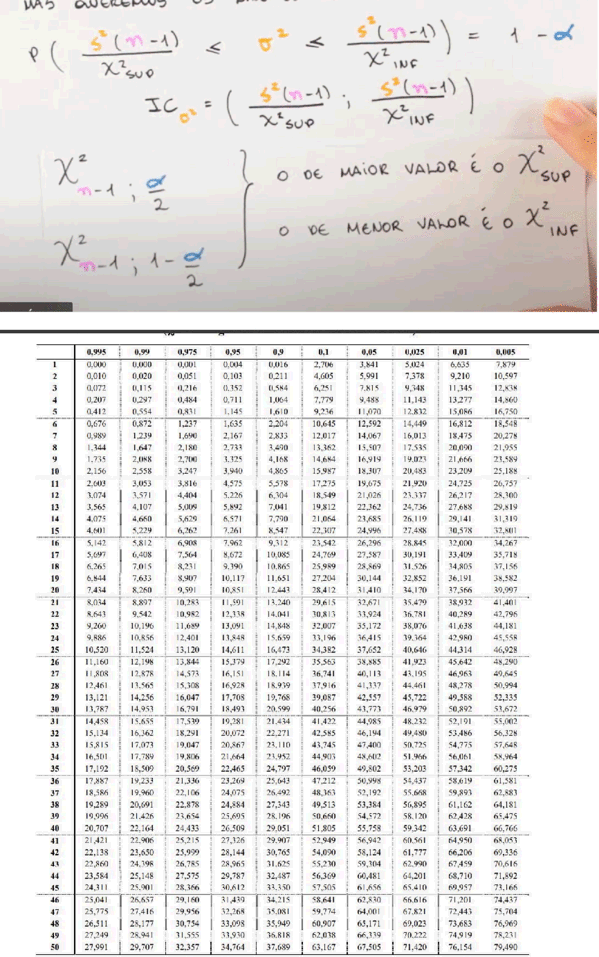 MAS QUEREMOS OS
P ( s²(n-1) / χ²SUP ≤ σ² ≤ s²(n-1) / χ²INF ) = 1 - α
ICσ² = ( s²(n-1) / χ²SUP ; s²(n-1) / χ²INF )
χ² n-1 ; α/2
O DE MAIOR VALOR É O χ²SUP
χ² n-1 ; 1-α/2
O DE MENOR VALOR É O χ²INF
0,995 0,99 0,975 0,95 0,9 0,1 0,05 0,025 0,01 0,005
1 0,000 0,000 0,001 0,004 0,016 2,706 3,841 5,024 6,635 7,879
2 0,010 0,020 0,051 0,103 0,211 4,605 5,991 7,378 9,210 10,597
3 0,072 0,115 0,216 0,352 0,584 6,251 7,815 9,348 11,345 12,838
4 0,207 0,297 0,484 0,711 1,064 7,779 9,488 11,143 13,277 14,860
5 0,412 0,554 0,831 1,145 1,610 9,236 11,070 12,832 15,086 16,750
6 0,676 0,872 1,237 1,635 2,204 10,645 12,592 14,449 16,812 18,548
7 0,989 1,239 1,690 2,167 2,833 12,017 14,067 16,013 18,475 20,278
8 1,344 1,647 2,180 2,733 3,490 13,362 15,507 17,535 20,090 21,955
9 1,735 2,088 2,700 3,325 4,168 14,684 16,919 19,023 21,666 23,589
10 2,156 2,558 3,247 3,940 4,865 15,987 18,307 20,483 23,209 25,188
11 2,603 3,053 3,816 4,575 5,578 17,275 19,675 21,920 24,725 26,757
12 3,074 3,571 4,404 5,226 6,304 18,549 21,026 23,337 26,217 28,300
13 3,565 4,107 5,009 5,892 7,041 19,812 22,362 24,736 27,688 29,819
14 4,075 4,660 5,629 6,571 7,790 21,064 23,685 26,119 29,141 31,319
15 4,601 5,229 6,262 7,261 8,547 22,307 24,996 27,488 30,578 32,801
16 5,142 5,812 6,908 7,962 9,312 23,542 26,296 28,845 32,000 34,267
17 5,697 6,408 7,564 8,672 10,085 24,769 27,587 30,191 33,409 35,718
18 6,265 7,015 8,231 9,390 10,865 25,989 28,869 31,526 34,805 37,156
19 6,844 7,633 8,907 10,117 11,651 27,204 30,144 32,852 36,191 38,582
20 7,434 8,260 9,591 10,851 12,443 28,412 31,410 34,170 37,566 39,997
21 8,034 8,897 10,283 11,591 13,240 29,615 32,671 35,479 38,932 41,401
22 8,643 9,542 10,982 12,338 14,041 30,813 33,924 36,781 40,289 42,796
23 9,260 10,196 11,689 13,091 14,848 32,007 35,172 38,076 41,638 44,181
24 9,886 10,856 12,401 13,848 15,659 33,196 36,415 39,364 42,980 45,558
25 10,520 11,524 13,120 14,611 16,473 34,382 37,652 40,646 44,314 46,928
26 11,160 12,198 13,844 15,379 17,292 35,563 38,885 41,923 45,642 48,290
27 11,808 12,878 14,573 16,151 18,114 36,741 40,113 43,195 46,963 49,645
28 12,461 13,565 15,308 16,928 18,939 37,916 41,337 44,461 48,278 50,994
29 13,121 14,256 16,047 17,708 19,768 39,087 42,557 45,722 49,588 52,335
30 13,787 14,953 16,791 18,493 20,599 40,256 43,773 46,979 50,892 53,672
31 14,458 15,655 17,539 19,281 21,434 41,422 44,985 48,232 52,191 55,002
32 15,134 16,362 18,291 20,072 22,271 42,585 46,194 49,480 53,486 56,328
33 15,815 17,073 19,047 20,867 23,110 43,745 47,400 50,725 54,775 57,648
34 16,501 17,789 19,806 21,664 23,952 44,903 48,602 51,966 56,061 58,964
35 17,192 18,509 20,569 22,465 24,797 46,059 49,802 53,203 57,342 60,275
36 17,887 19,233 21,336 23,269 25,643 47,212 50,998 54,437 58,619 61,581
37 18,586 19,960 22,106 24,075 26,492 48,363 52,192 55,668 59,893 62,883
38 19,289 20,691 22,878 24,884 27,343 49,513 53,384 56,895 61,162 64,181
39 19,996 21,426 23,654 25,695 28,196 50,660 54,572 58,120 62,428 65,475
40 20,707 22,164 24,433 26,509 29,051 51,805 55,758 59,342 63,691 66,766
41 21,421 22,906 25,215 27,326 29,907 52,949 56,942 60,561 64,950 68,053
42 22,138 23,650 25,999 28,144 30,765 54,090 58,124 61,777 66,206 69,336
43 22,860 24,398 26,785 28,965 31,625 55,230 59,304 62,990 67,459 70,616
44 23,584 25,148 27,575 29,787 32,487 56,369 60,481 64,201 68,710 71,892
45 24,311 25,901 28,366 30,612 33,350 57,505 61,656 65,410 69,957 73,166
46 25,041 26,657 29,160 31,439 34,215 58,641 62,830 66,616 71,201 74,437
47 25,775 27,416 29,956 32,268 35,081 59,774 64,001 67,821 72,443 75,704
48 26,511 28,177 30,754 33,098 35,949 60,907 65,171 69,023 73,683 76,969
49 27,249 28,941 31,555 33,930 36,818 62,038 66,339 70,222 74,919 78,231
50 27,991 29,707 32,357 34,764 37,689 63,167 67,505 71,420 76,154 79,490